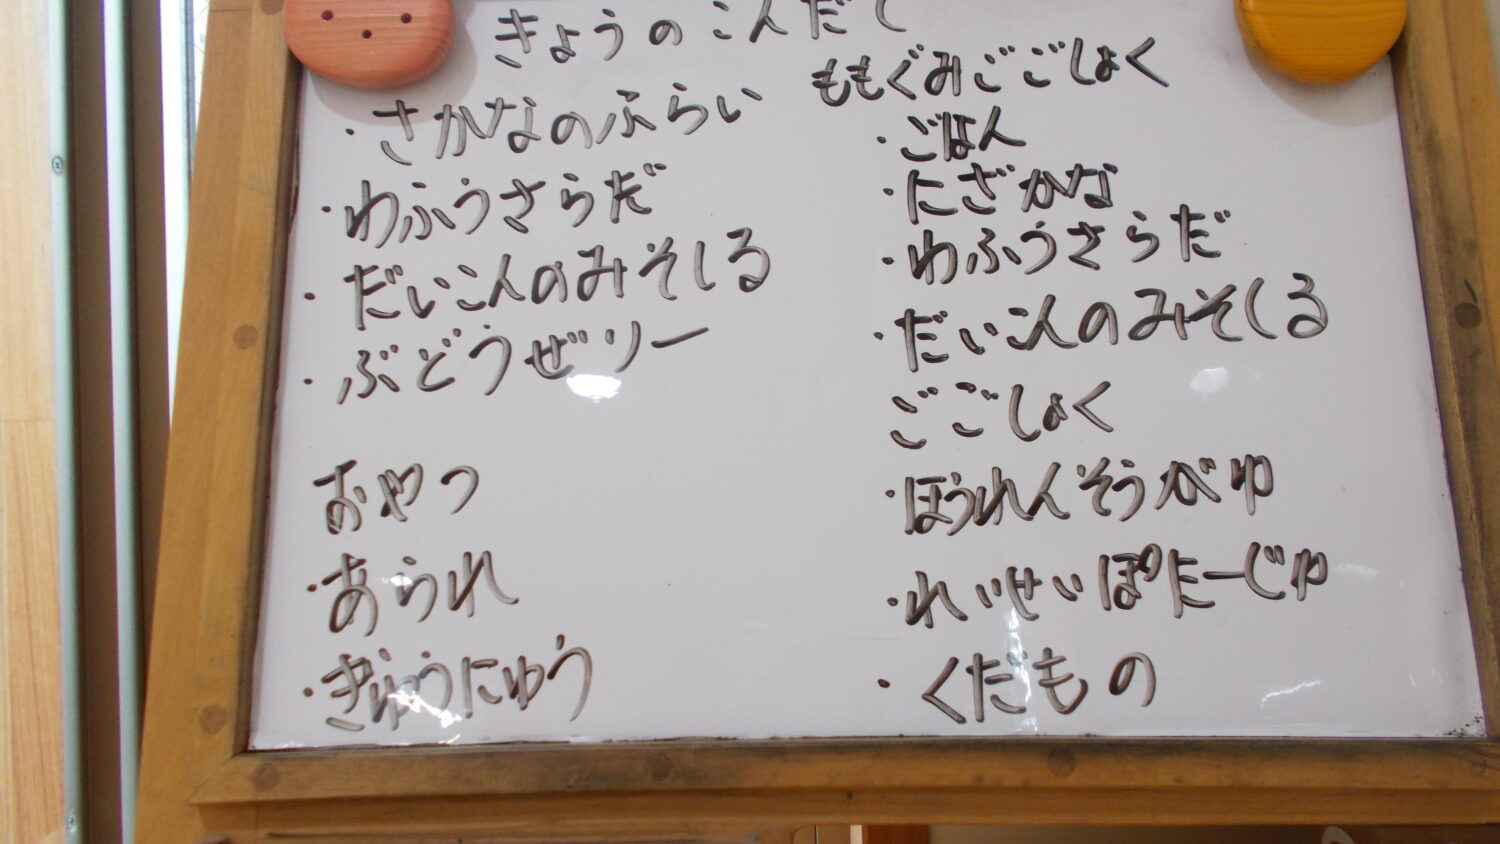 きょうのこんだて
・さかなのふらい
・わふうさらだ
・だいこんのみそしる
・ぶどうぜりー
おやつ
・あられ
・ぎゅうにゅう
ももぐみごごしょく
・ごはん
・にざかな
・わふうさらだ
・だいこんのみそしる
ごごしょく
・ほうれんそうがゆ
・れいせいぽたーじゅ
・くだもの